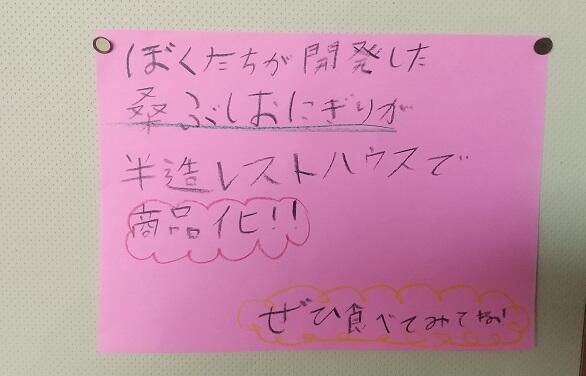 ぼくたちが開発した
桑ぶしおにぎりが
半造レストハウスで
商品化!!
ぜひ食べてみてね!